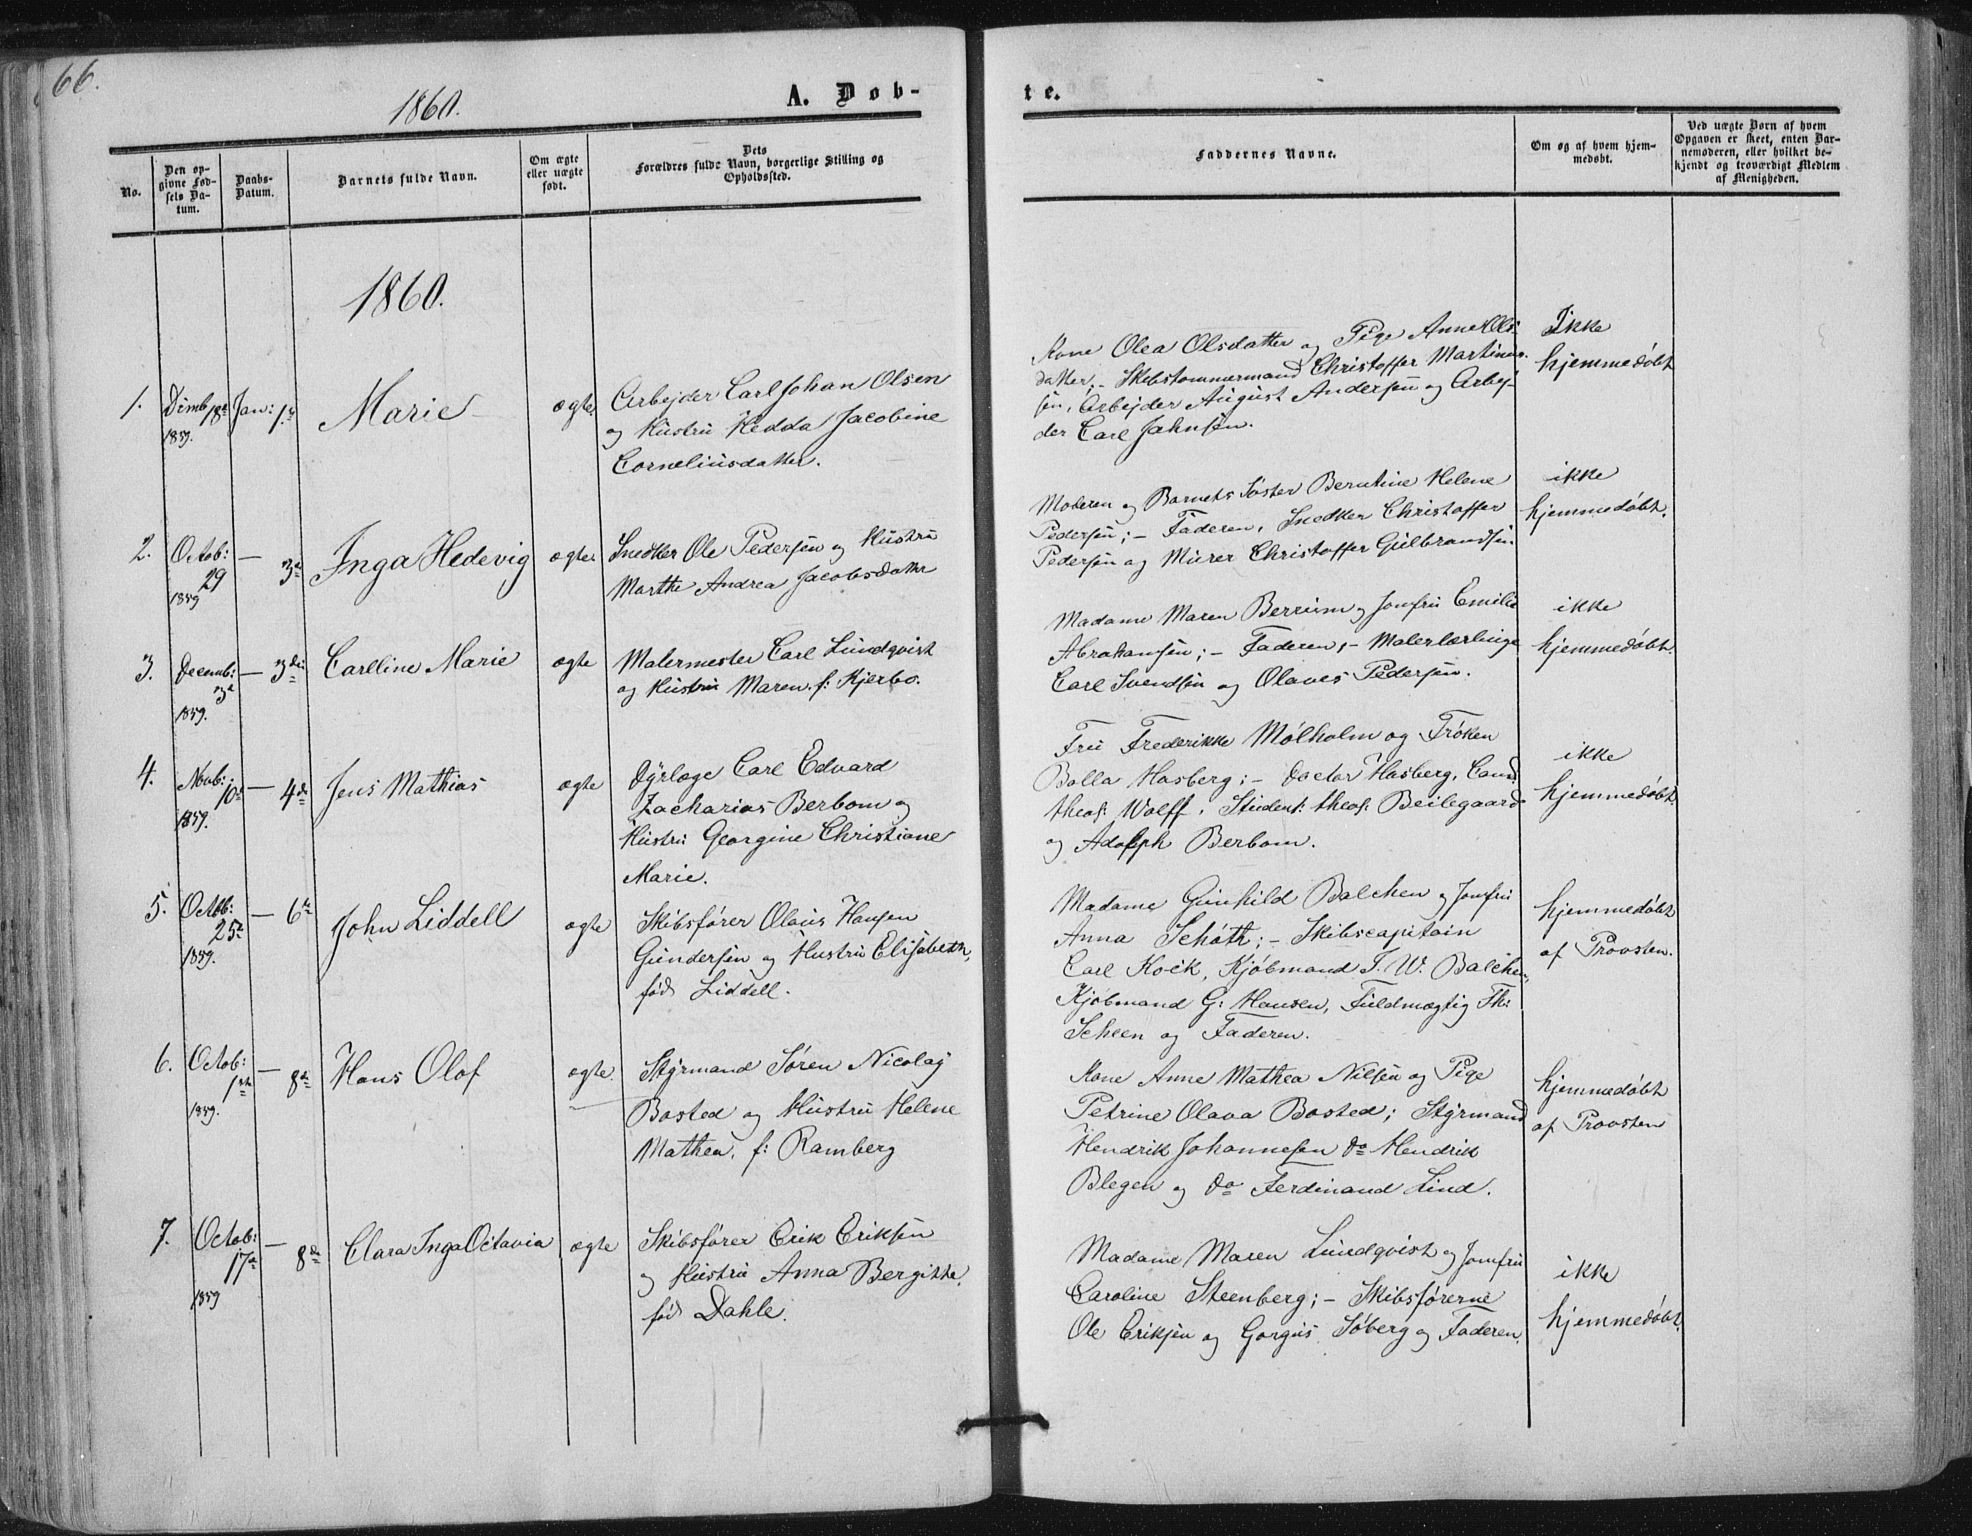 66.
1860.
A. Døb-
te.
No.
Den op-
givne Fød-
sels Da-
tum.
Daabs-
Datum.
Barnets fulde Navn.
Om ægte
eller uægte
født.
Dets
Forældres fulde Navn, borgerlige Stilling og
Opholdssted.
Faddernes Navne.
Om og af hvem hjem-
medøbt.
Ved uægte Børn af hvem
Opgaven er skeet, enten Bar-
nemoderen, eller hvilket be-
kjendt og troværdigt Medlem
af Menigheden.
1860.
1.
Dcmb 18de
1859.
Jan: 1ste
Marie
ægte
Arbejder Carl Johan Olsen
og Hustru Hedda Jacobine
Corneliusdatter.
Kone Olea Olsdatter og Pige Anne Ols-
datter; - Skibstømmermand Christoffer Martinus-
sen, Arbejder August Andersen og Arbej-
der Carl Jahnsen.
Ikke
hjemmedøbt
2.
Octob:
29
1859
— 3de
Inga Hedevig
ægte
Snedker Ole Pedersen og Hustru
Marthe Andrea Jacobsdatter
Moderen og Barnets Søster Berntine Helene
Pedersen; - Faderen, Snedker Christoffer
Pedersen og Murer Christoffer Gulbrandsen.
ikke
hjemmedøbt.
3.
Decemb:
3de
1859.
— 3de
Carlline Marie
ægte
Malermester Carl Lundqvist
og Hustru Maren f: Kjerbo.
Madame Maren Berrum og Jomfru Emilie
Abrahamsen; - Faderen, - Malerlærlinge
Carl Svendsen og Olaves Pedersen.
ikke
hjemmedøbt.
4.
Novb:
10de
1859.
— 4de
Jens Mathias
ægte
Dyrlæge Carl Edvard
Zacharias Berbom og
Hustru Georgine Christiane
Marie.
Fru Frederikke Mølholm og Frøken
Bolla Hasberg; - Doctor Hasberg, Cand.
theol: Wolff, Student: theol: Beilegaard
og Adolph Berbom.
ikke
hjemmedøbt
5.
Octob:
25de
1859.
— 6te
John Liddell
ægte
Skibsfører Olaus Hansen
Gundersen og Hustru Elisabeth,
født Liddell.
Madame Gunhild Balchen og Jomfru
Anna Schøth; - Skibscapitain
Carl Kock, Kjøbmand F. W. Balchen,
Kjøbmand G: Hansen, Fuldmægtig Th:
Scheen og Faderen.
hjemmedøbt
af Provsten.
6.
Octob:
1ste
1859.
— 8de
Hans Olaf
ægte.
Styrmand Søren Nicolay
Bosted og Hustru Helene
Mathea, f: Ramberg
Kone Anne Mathea Nilsen og Pige
Petrine Olava Bosted; Styrmand
Hendrik Johannesen do Hendrik
Blegen og do Ferdinand Lind.
hjemmedøbt
af Provsten
7.
Octob:
17de
1859
— 8de
Clara Inga Octavia
ægte
Skibsfører Erik Eriksen
og Hustru Anna Bergitte.
født Dahle.
Madame Maren Lundqvist og Jomfru
Caroline Steenberg; - Skibsførerne
Ole Eriksen og Gorgus Søberg og Faderen.
ikke
hjemmedøbt.